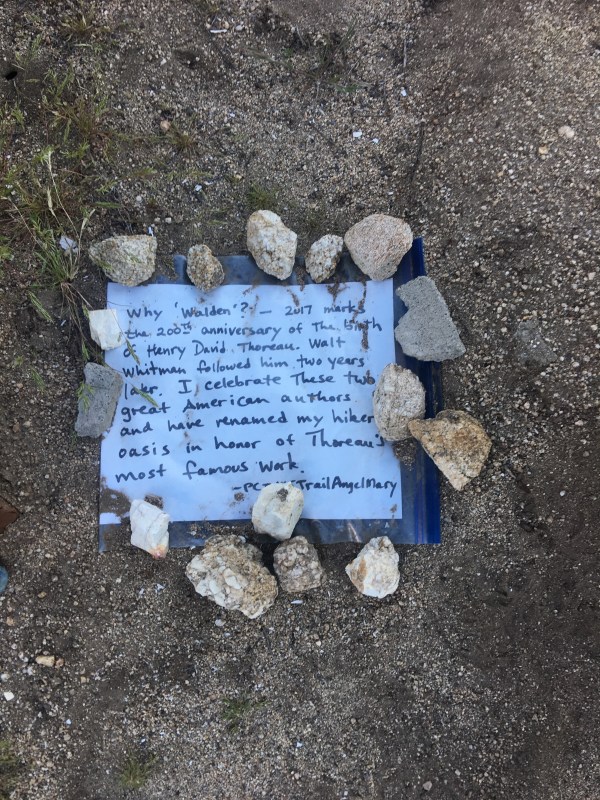 Why 'Walden'? — 2017 marks
the 200th anniversary of The birth
of Henry David Thoreau. Walt
Whitman followed him two years
later. I celebrate These two
great American authors
and have renamed my hiker
oasis in honor of Thoreau's
most famous work.
TrailAngelMary